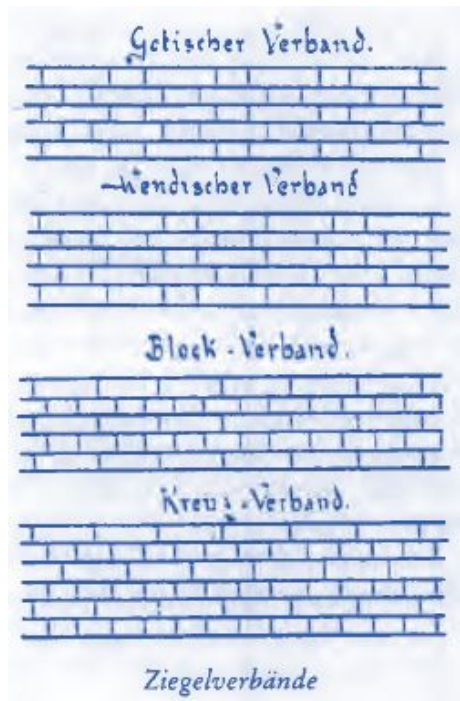 Gotischer Verband.
Wendischer Verband
Block-Verband.
Kreuz-Verband.
Ziegelverbände